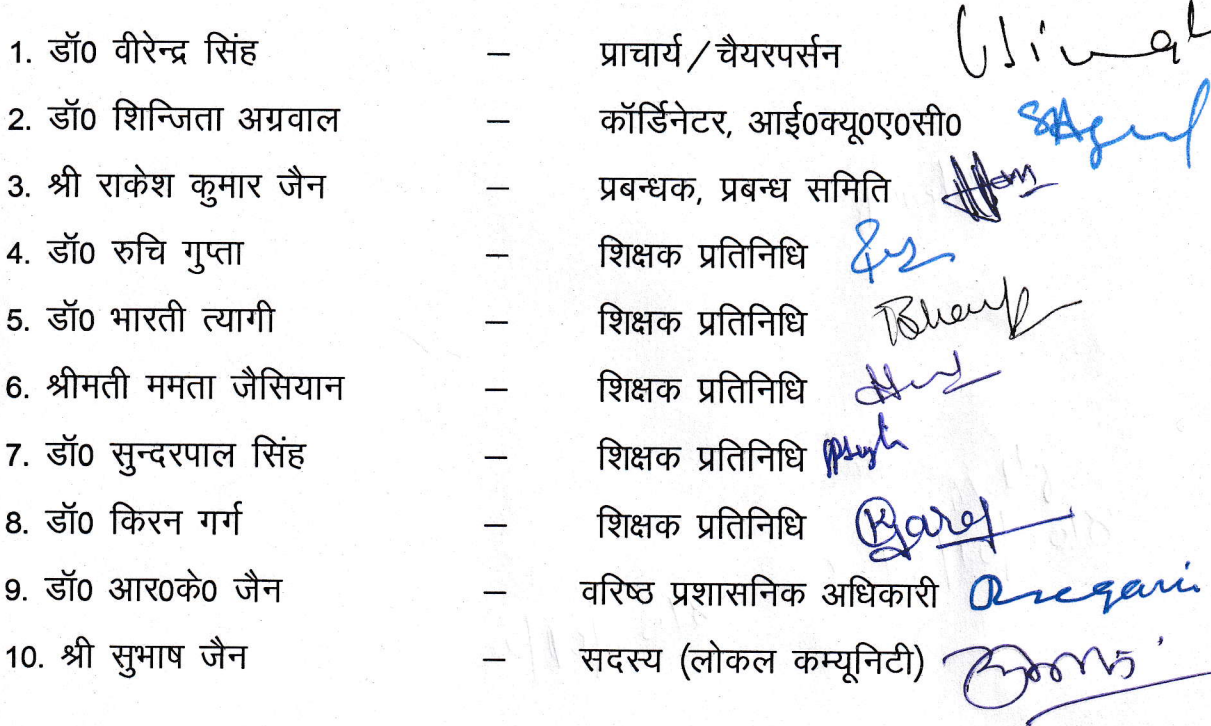 1. डॉ0 वीरेन्द्र सिंह – प्राचार्य / चैयरपर्सन
2. डॉ0 शिन्जिता अग्रवाल – कॉर्डिनेटर, आई0क्यू0ए0सी0
3. श्री राकेश कुमार जैन – प्रबन्धक, प्रबन्ध समिति
4. डॉ0 रुचि गुप्ता – शिक्षक प्रतिनिधि
5. डॉ0 भारती त्यागी – शिक्षक प्रतिनिधि
6. श्रीमती ममता जैसियान – शिक्षक प्रतिनिधि
7. डॉ0 सुन्दरपाल सिंह – शिक्षक प्रतिनिधि
8. डॉ0 किरन गर्ग – शिक्षक प्रतिनिधि
9. डॉ0 आर0के0 जैन – वरिष्ठ प्रशासनिक अधिकारी
10. श्री सुभाष जैन – सदस्य (लोकल कम्यूनिटी)